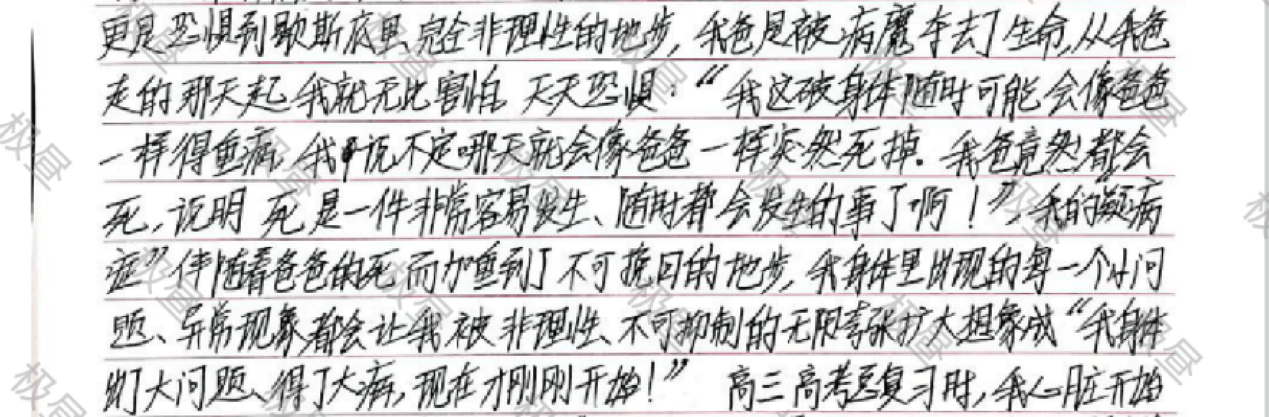 更是恐惧到歇斯底里、完全非理性的地步，我爸是被病魔夺去了生命，从我爸
走的那天起，我就无比害怕，天天恐惧：“我这破身体随时可能会像爸爸
一样得重病，我说不定哪天就会像爸爸一样突然死掉。我爸竟然都会
死，说明 死是一件非常容易发生、随时都会发生的事了啊！”，我的“疑病
症”伴随着爸爸的死而加重到了不可挽回的地步，我身体里出现的每一个小问
题、异常现象都会让我被非理性、不可抑制的无限夸张扩大想象成“我身体
出了大问题、得了大病，现在才刚刚开始！” 高三高考总复习时，我心脏开始
极昼